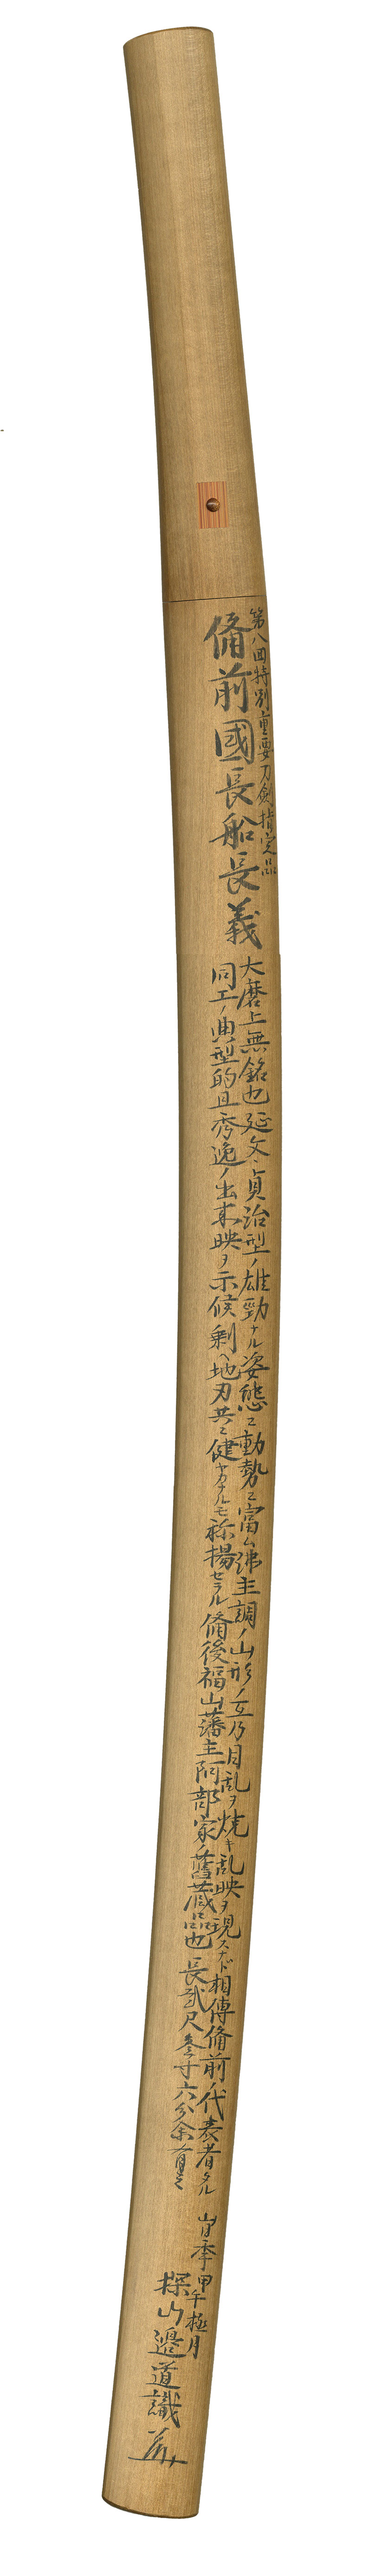 第八回特別重要刀剣指定品
備前國長船長義
大磨上無銘也延文、貞治型ノ雄勁ナル姿態ニ動勢ニ富ム
主調ノ山形ノ互乃目乱ヲ焼キ乱映ヲ現スナド相傳備前ノ代表者タル
同工ノ典型的且秀逸ノ出来映ヲ示候剰ヘ地刃共ニ健ヤカナルモ称揚セラル備後福山藩主阿部家ノ舊蔵品也
長貳尺参寸六分余有之
時季甲午極月
探山邉道識